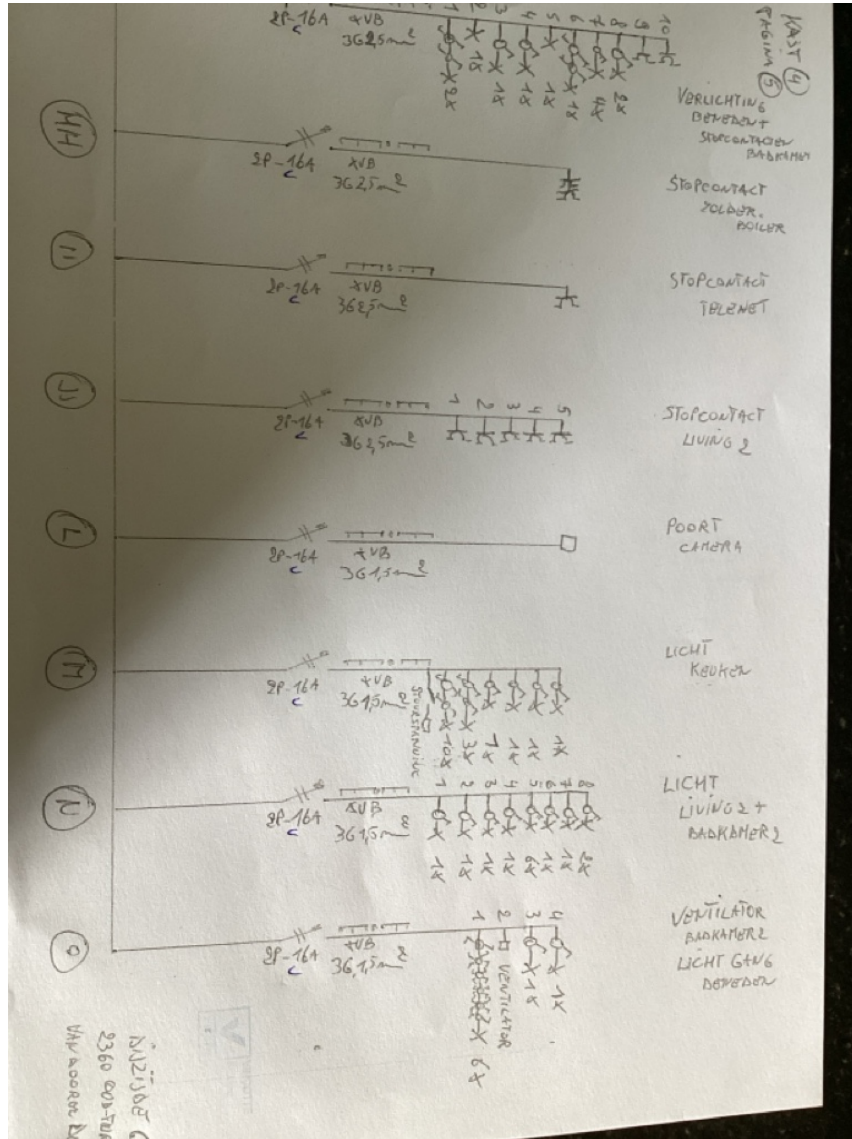 KAST 4
PAGINA 5
2P-16A
C
XVB
3G2,5mm²
1 2 3 4 5 6 7 8 9 10
2X 1X 1X 1X 1X 1X 4X 2X
VERLICHTING
BENEDEN +
STOPCONTACTEN
BADKAMER
HH
2P-16A
C
XVB
3G2,5mm²
STOPCONTACT
ZOLDER.
BOILER
II
2P-16A
C
XVB
3G2,5mm²
STOPCONTACT
TELENET
JJ
2P-16A
C
XVB
3G2,5mm²
1 2 3 4 5
STOPCONTACT
LIVING 2
L
2P-16A
C
XVB
3G1,5mm²
POORT
CAMERA
M
2P-16A
C
XVB
3G1,5mm²
STUURSPANNING
10X 3X 7X 1X 1X 1X
LICHT
KEUKEN
N
2P-16A
C
XVB
3G1,5mm²
1 2 3 4 5 6 7 8
1X 1X 1X 1X 6X 1X 1X 2X
LICHT
LIVING 2 +
BADKAMER 2
O
2P-16A
C
XVB
3G1,5mm²
1 2 3 4
6X VENTILATOR 1X 1X
VENTILATOR
BADKAMER 2
LICHT GANG
BENEDEN
2360 OUD-TUR